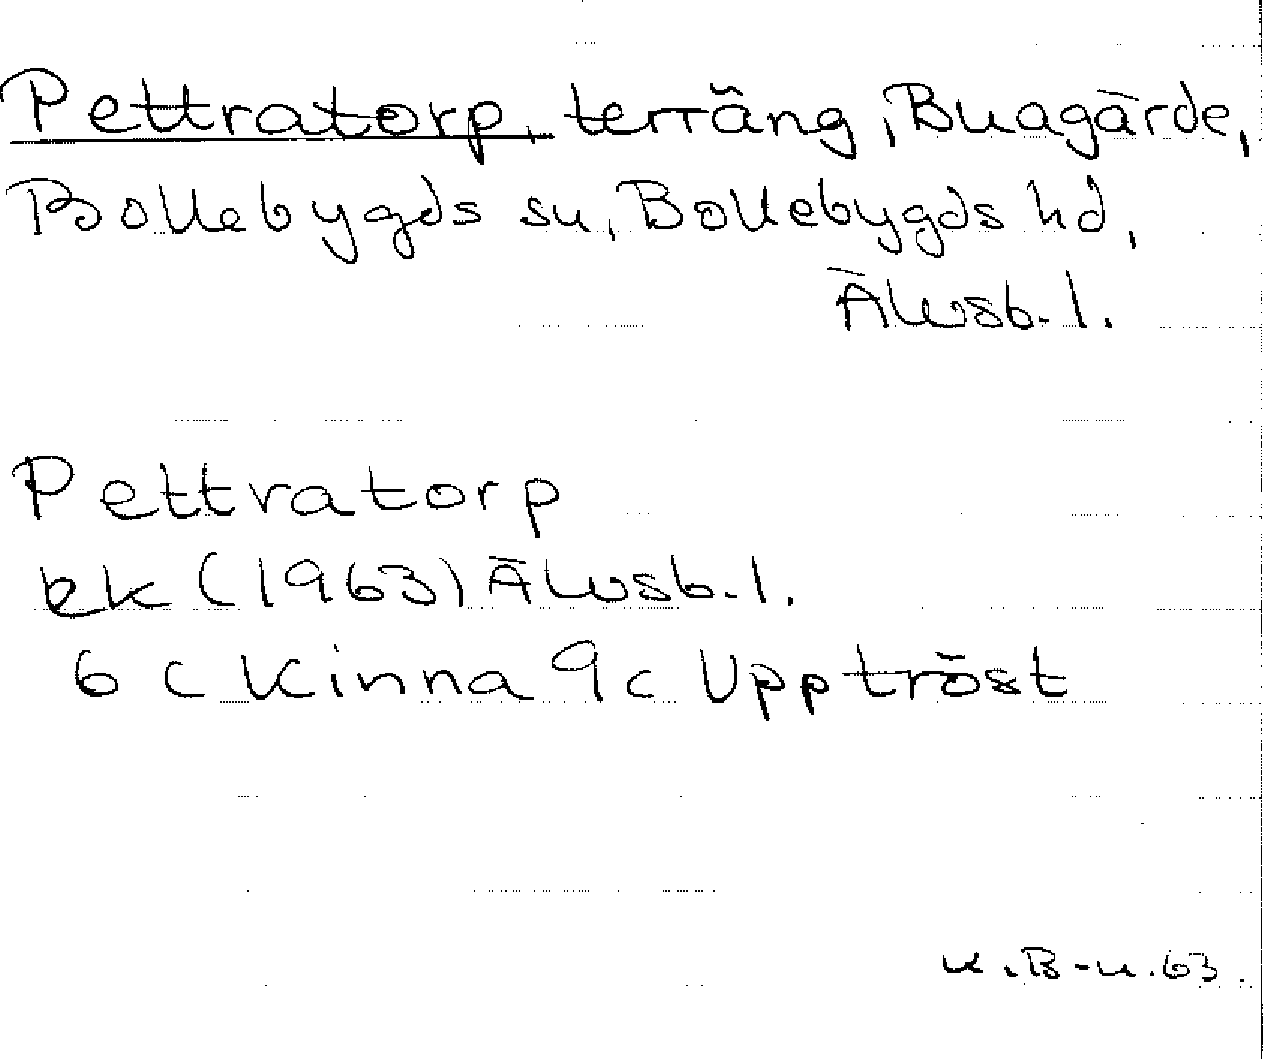 Pettratorp, terräng, Buagärde,
Bollebygds sn, Bollebygds hd,
Älvsb. l.
Pettratorp
ek (1963) Älvsb. l.
6 C Kinna 9 c Upptröst
K.B-n. 63.